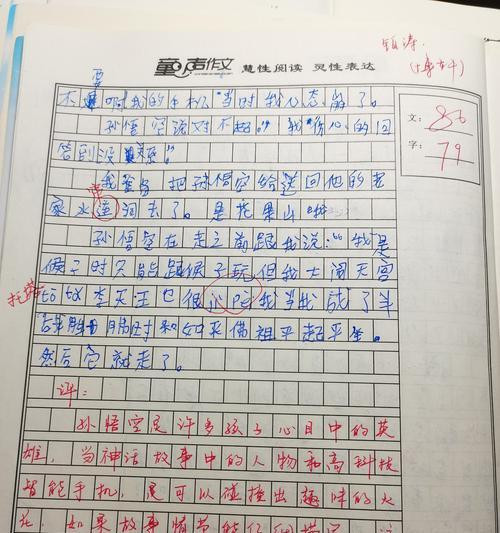 童声作文 慧性阅读 灵性表达
要
不 啊我的手机"当时我心态崩了。
孙悟空说对不起。"我伤心的回
答到没关系。
我 把孙悟空给送回他的老
家水莲洞去了。是花果山
孙悟空在走之前跟我说:"我是
猴子时只能跟猴子玩但我大闹天宫
tota李天王也很 我当我成了斗
战胜 时和如来佛祖平起平坐。
然后它就走了。
托塔
评:
孙悟空是许多孩子心目中的英
雄,当神话故事中的人物和高科技
智能手机,是可以碰撞出趣味的火
花,如果故事情节能仔细描写,这
文: 86
字: 79